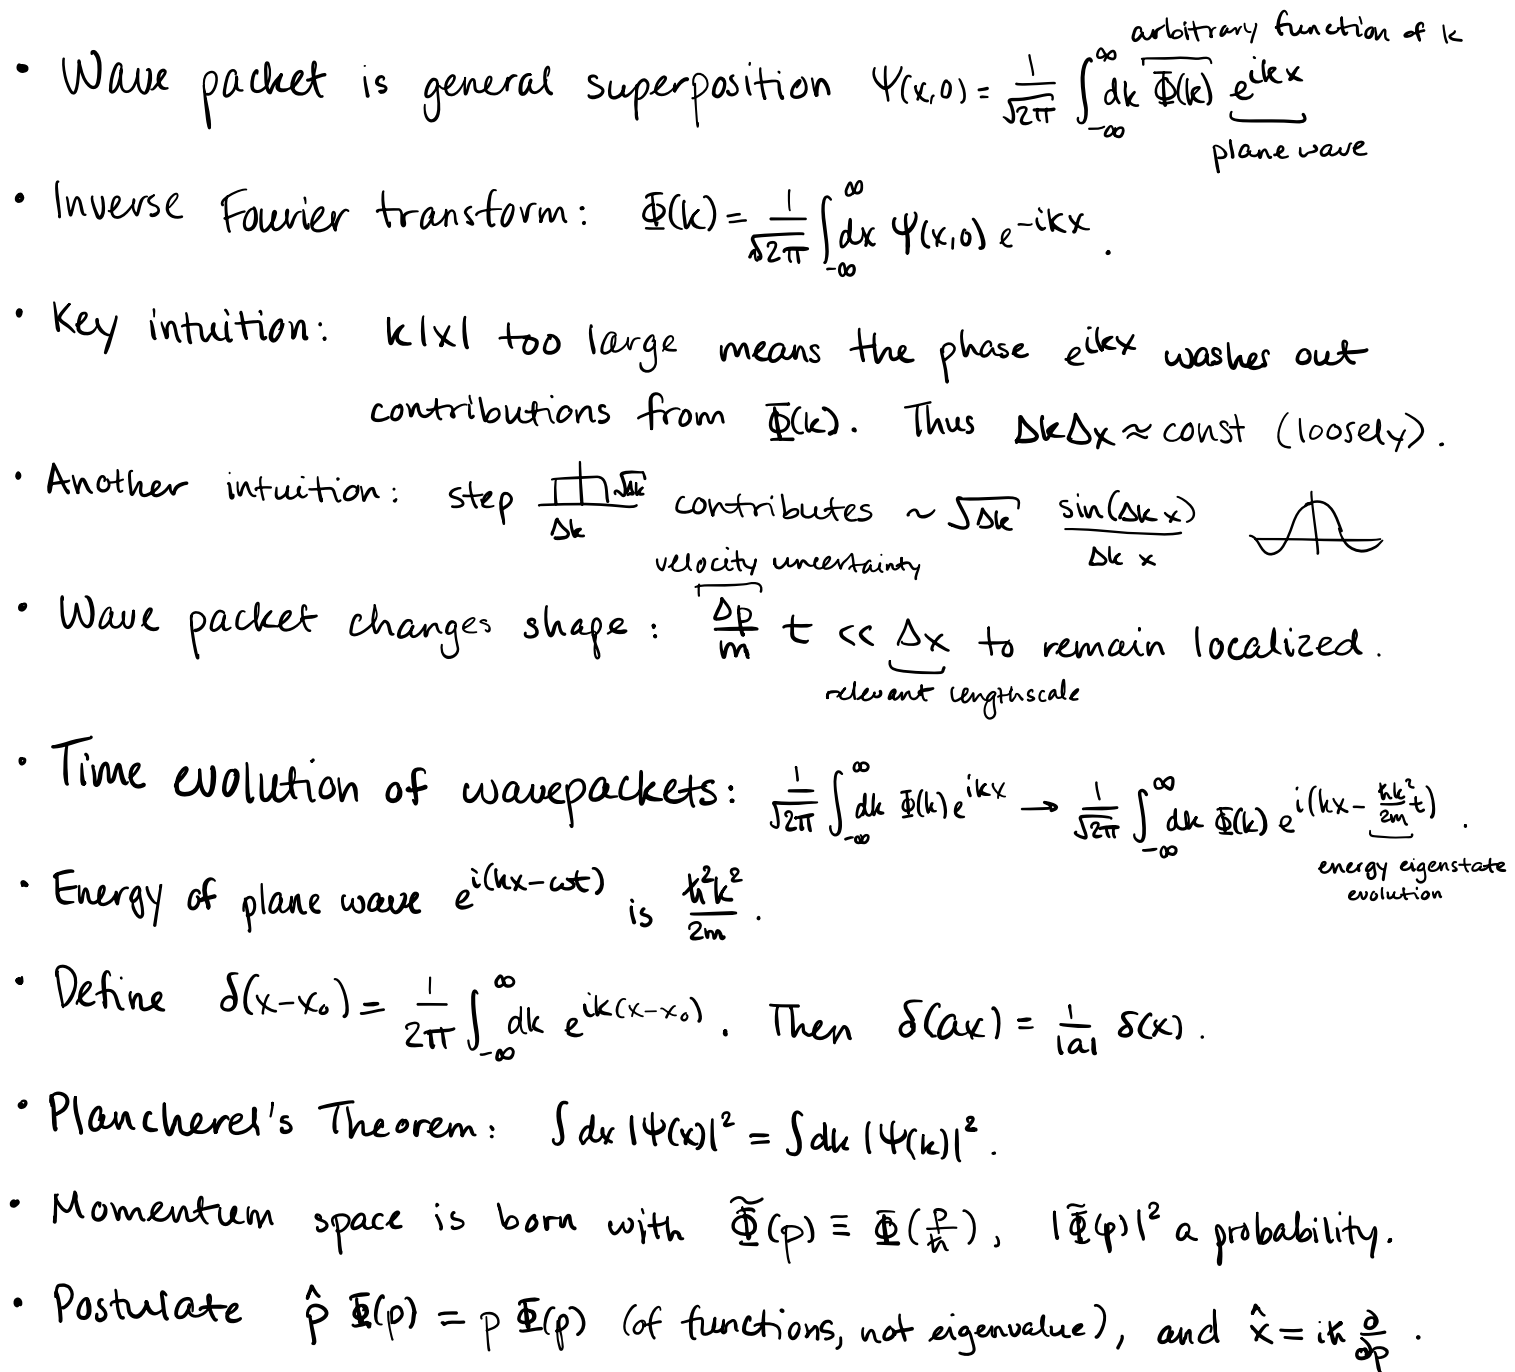 arbitrary function of k
• Wave packet is general superposition Ψ(x,0) = 1/√2π ∫_{-∞}^{∞} dk Φ(k) e^{ikx}
plane wave
• Inverse Fourier transform: Φ(k) = 1/√2π ∫_{-∞}^{∞} dx Ψ(x,0) e^{-ikx}.
• Key intuition: k|x| too large means the phase e^{ikx} washes out
contributions from Φ(k). Thus ΔkΔx ≈ const (loosely).
• Another intuition: step √Δk Δk contributes ~ √Δk sin(Δk x)/Δk x
velocity uncertainty
• Wave packet changes shape: Δp/m t << Δx to remain localized.
relevant lengthscale
• Time evolution of wavepackets: 1/√2π ∫_{-∞}^{∞} dk Φ(k) e^{ikx} → 1/√2π ∫_{-∞}^{∞} dk Φ(k) e^{i(kx - ħk²/2m t)}.
energy eigenstate
evolution
• Energy of plane wave e^{i(kx-ωt)} is ħ²k²/2m.
• Define δ(x-x₀) = 1/2π ∫_{-∞}^{∞} dk e^{ik(x-x₀)}. Then δ(ax) = 1/|a| δ(x).
• Plancherel's Theorem: ∫dx |Ψ(x)|² = ∫dk |Ψ(k)|².
• Momentum space is born with Φ̃(p) ≡ Φ(p/ħ), |Φ̃(p)|² a probability.
• Postulate p̂ Φ(p) = p Φ(p) (of functions, not eigenvalue), and x̂ = iħ ∂/∂p.